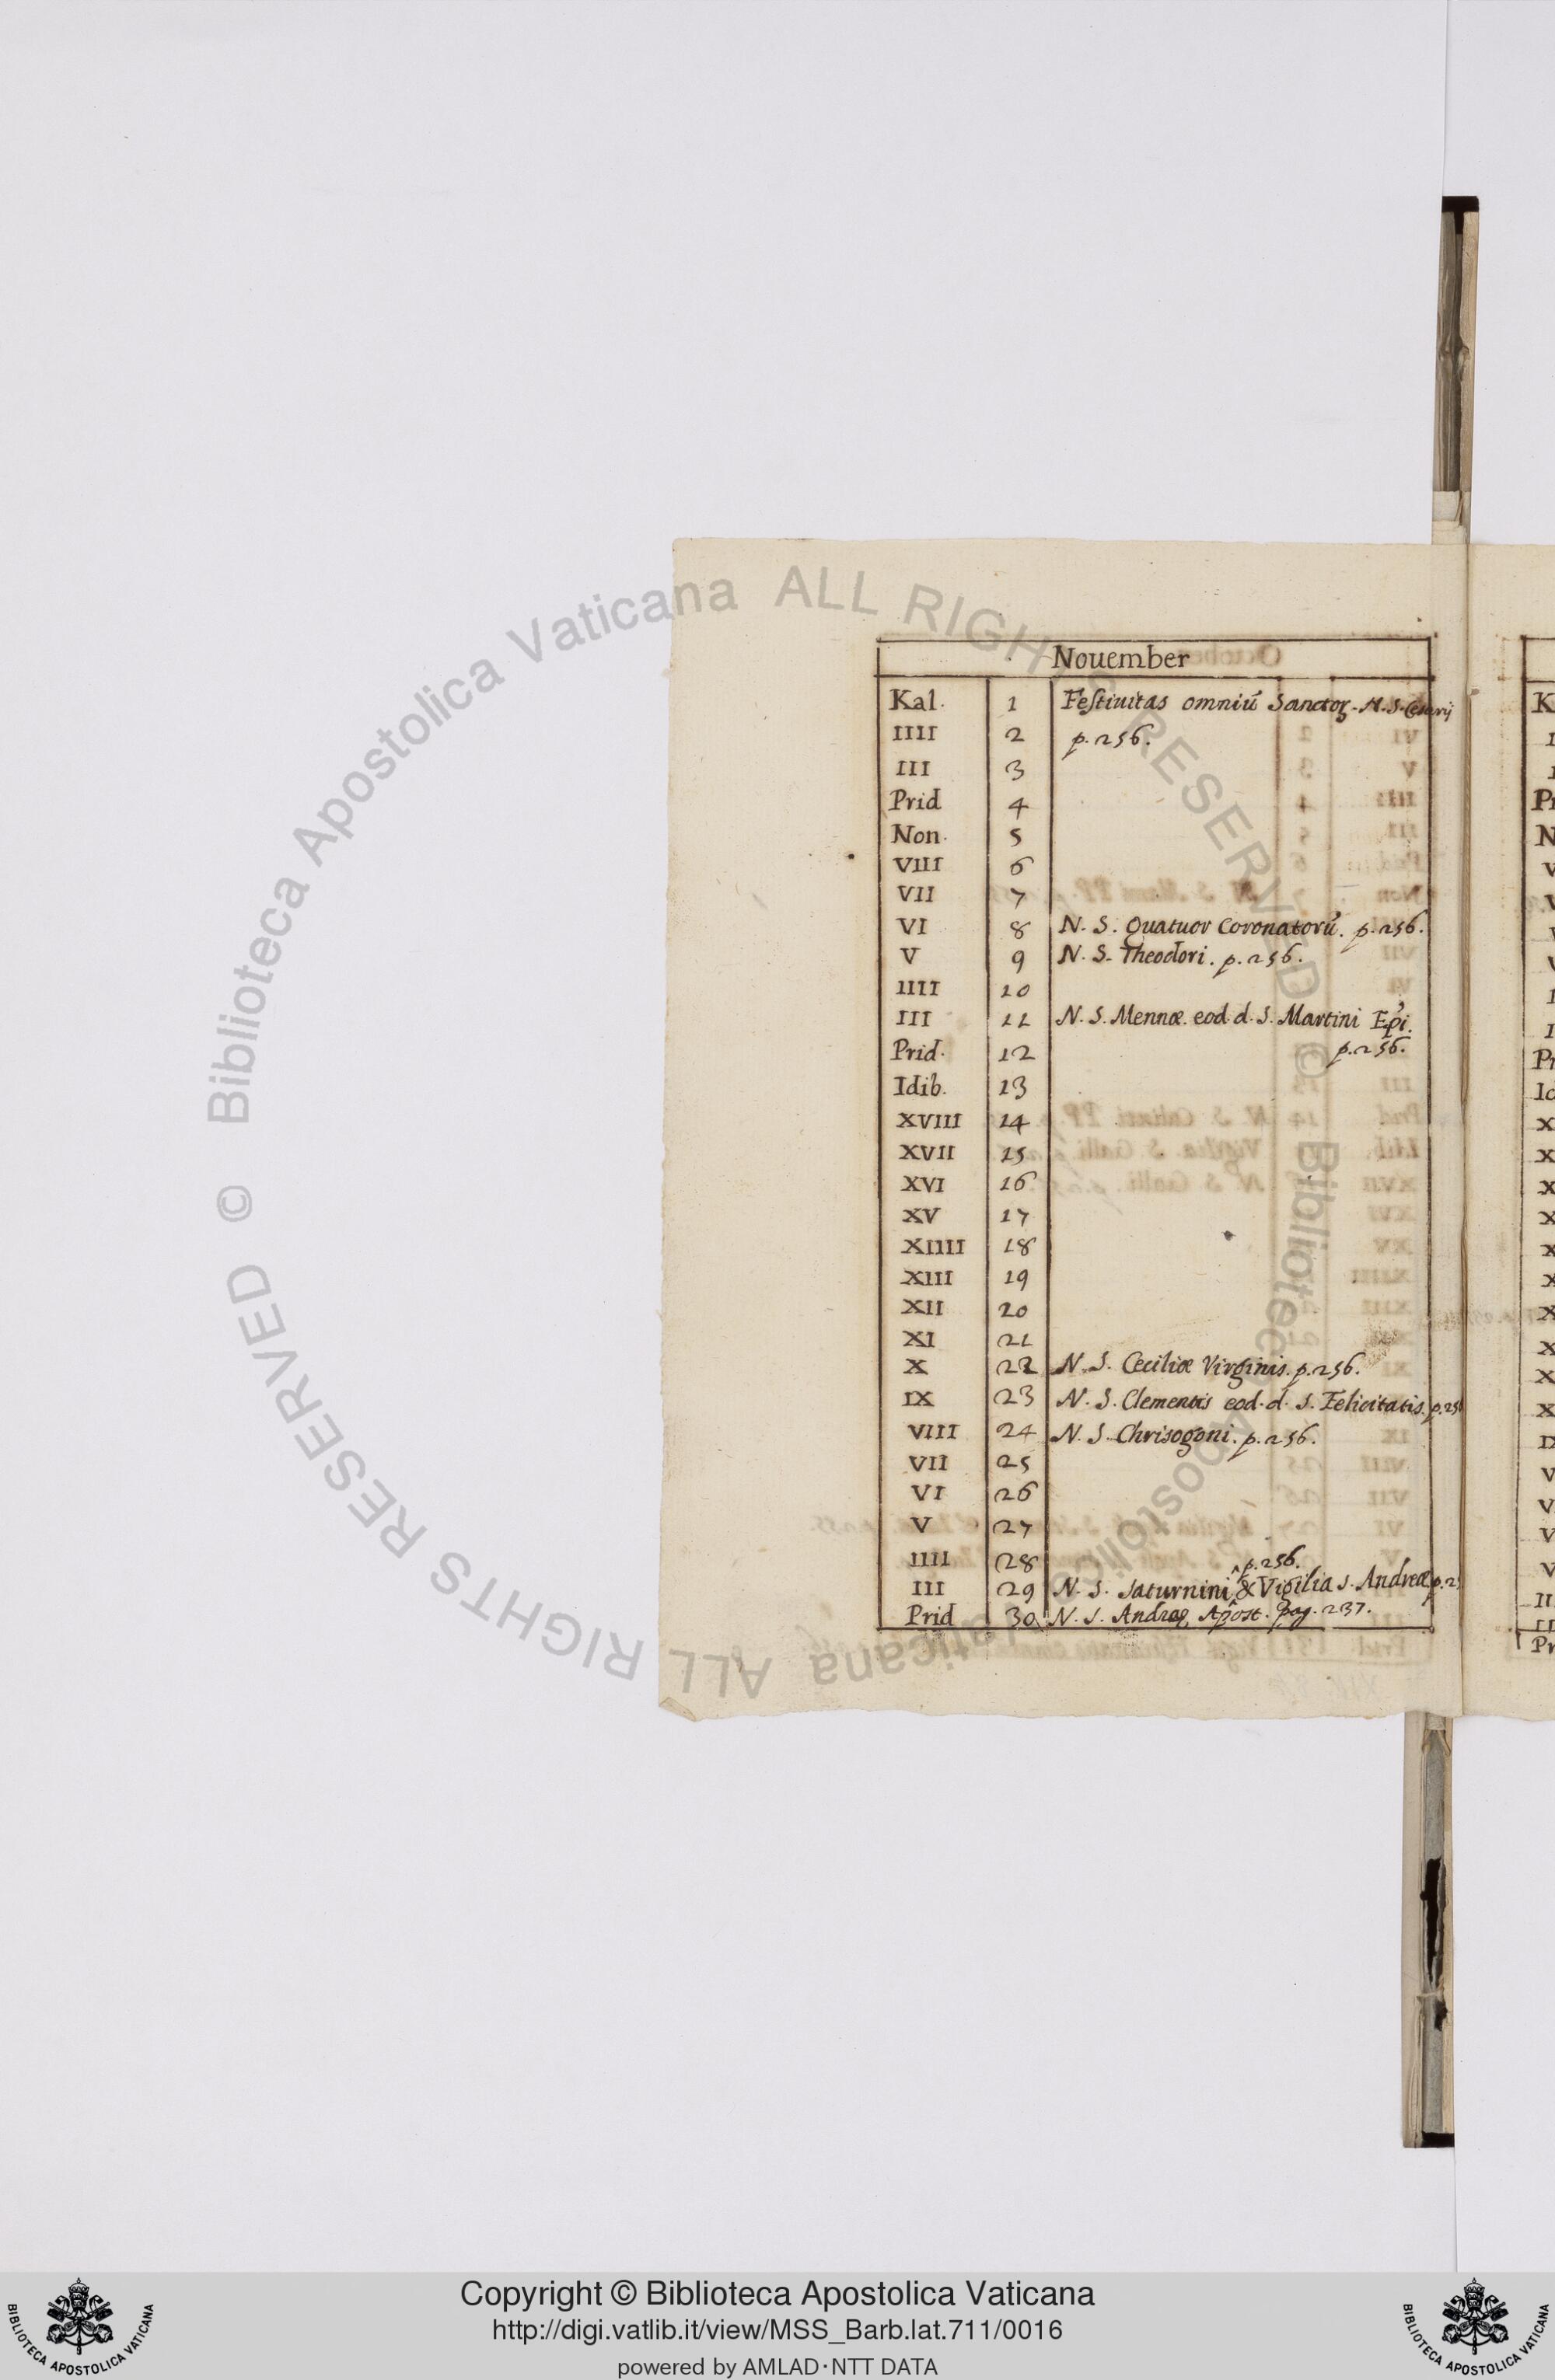 Nouember
Kal. 1 Festiuitas omniũ Sanctoꝝ. N. S. Cesarij
IIII 2 p. 256.
III 3
Prid 4
Non. 5
VIII 6
VII 7
VI 8 N. S. Quatuor Coronatorũ. p. 256.
V 9 N. S. Theodori. p. 256.
IIII 10
III 11 N. S. Mennæ. eod. d. S. Martini Epi.
Prid. 12 p. 256.
Idib. 13
XVIII 14
XVII 15
XVI 16
XV 17
XIIII 18
XIII 19
XII 20
XI 21
X 22 N. S. Ceciliæ Virginis. p. 256.
IX 23 N. S. Clementis eod. d. S. Felicitatis. p. 25
VIII 24 N. S. Chrisogoni. p. 256.
VII 25
VI 26
V 27
IIII 28 ^ p. 256.
III 29 N. S. Saturnini ^ & Vigilia S. Andreæ p. 2
Prid 30 N. S. Andreæ Apost. pag. 237.
Copyright © Biblioteca Apostolica Vaticana
http://digi.vatlib.it/view/MSS_Barb.lat.711/0016
powered by AMLAD·NTT DATA
BIBLIOTECA APOSTOLICA VATICANA
BIBLIOTECA APOSTOLICA VATICANA
© Biblioteca Apostolica Vaticana ALL RIGHTS RESERVED © Biblioteca Apostolica Vaticana ALL RIGHTS RESERVED